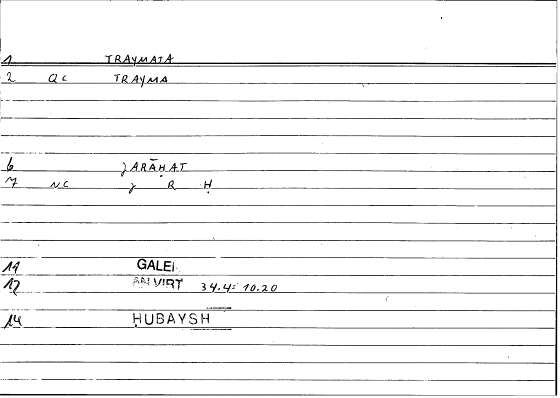 1 TRAYMATA
2 QC TRAYMA
6 ȷARĀḤAT
7 NC ȷ R Ḥ
11 GALEN
12 AN VIRT 34.4 = 10.20
14 ḤUBAYSH